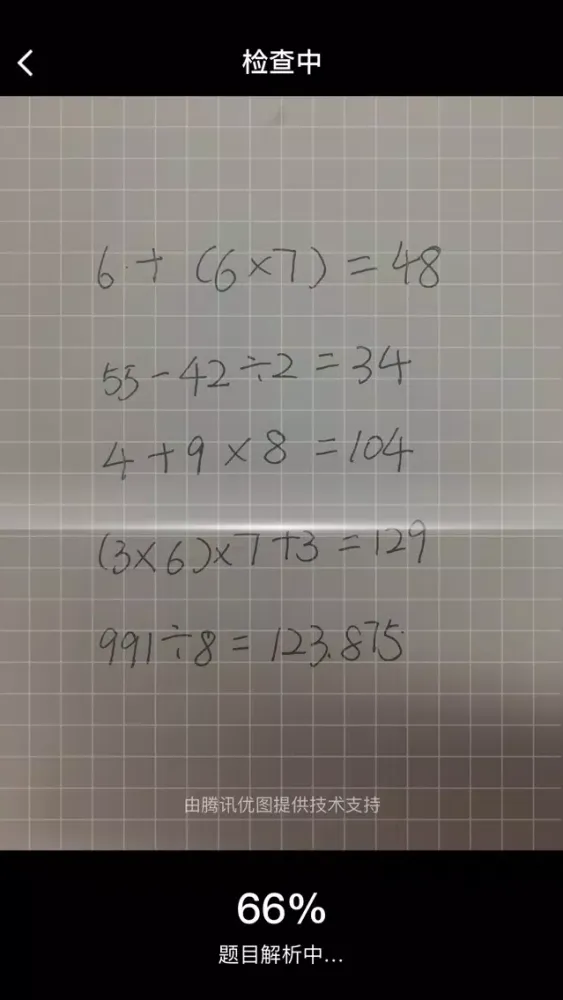 检查中
6+(6×7)=48
55-42÷2=34
4+9×8=104
(3×6)×7+3=129
991÷8=123.875
由腾讯优图提供技术支持
66%
题目解析中...